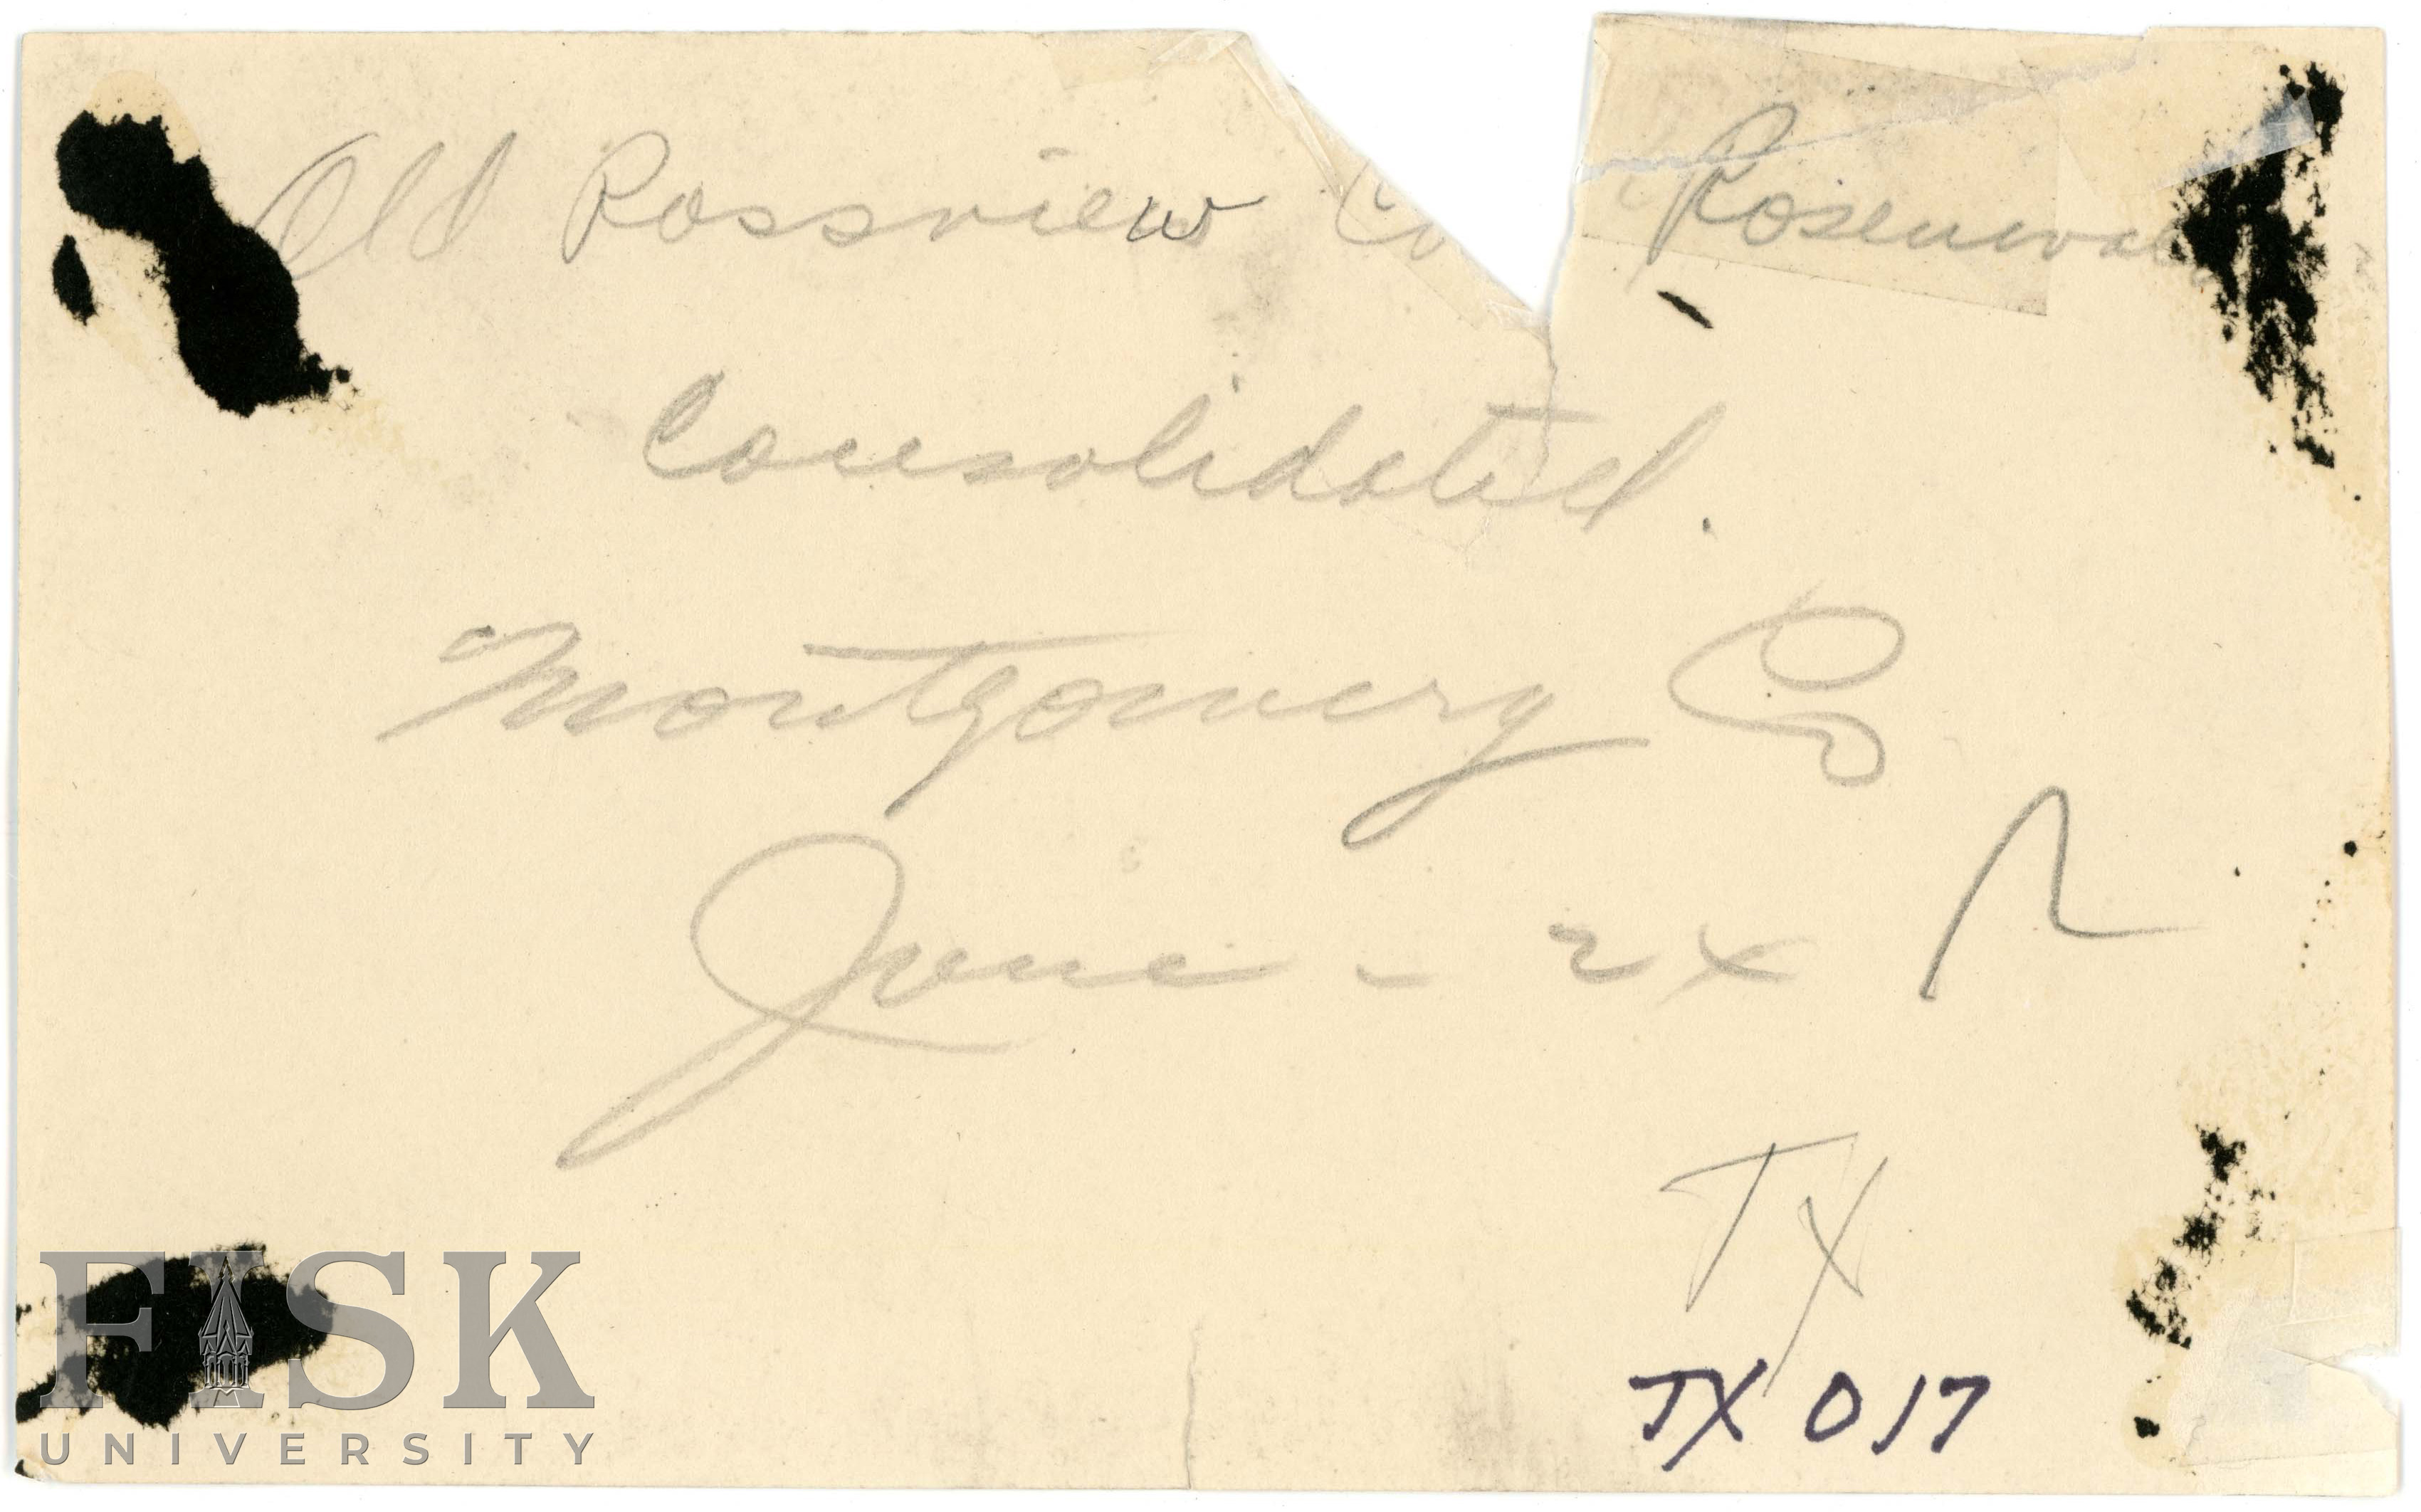 Old Rossview Co Rosenwald
Consolidated.
Montgomery Co
June - 2x
TX
TX 017
FISK
UNIVERSITY